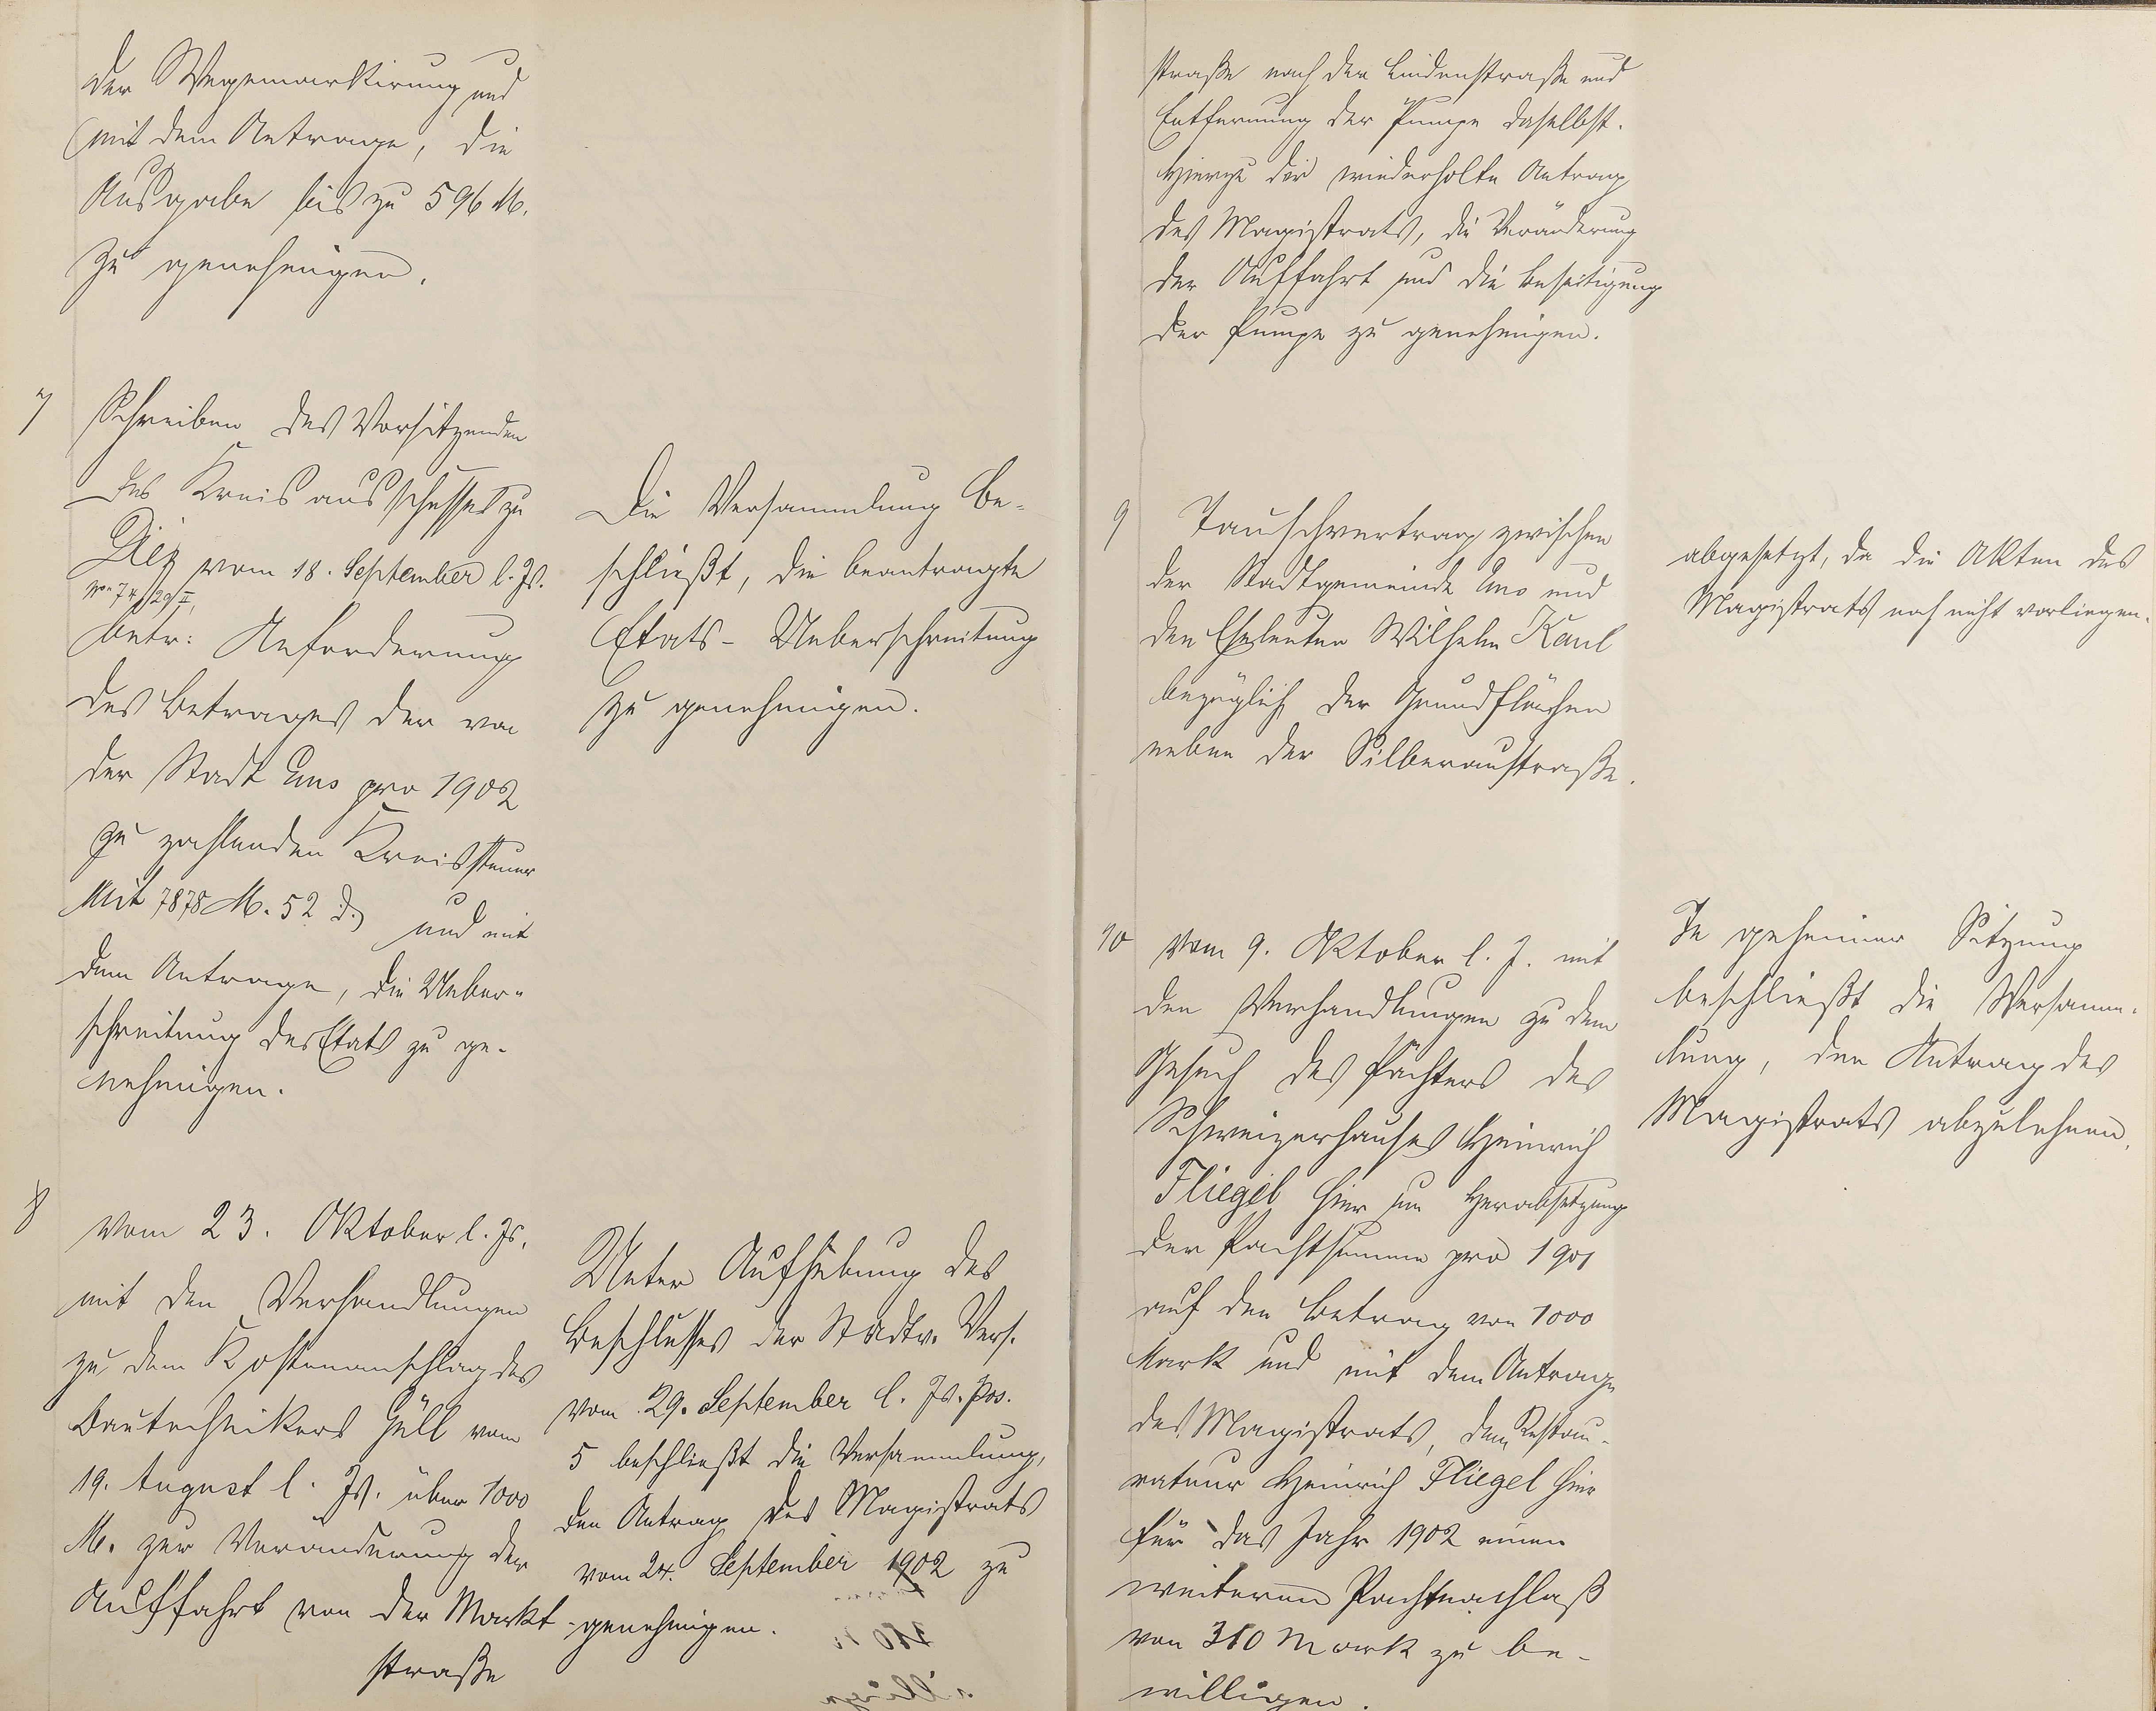 der Wegemarkirung und
mit dem Antrage, die
Ausgabe bis zu 596 M.
zu genehmigen.
7 Schreiben des Vorsitzenden
des Kreisausschusses zu
Diez vom 18. September l. Js.
betr: Anforderung
des Betrages der von
der Stadt Ems pro 1902
zu zahlenden Kreissteuer
mit 7878 M. 52 d. und mit
dem Antrage, die Ueber-
schreitung des Etats zu ge-
nehmigen.
Die Versammlung be-
schließt, die beantragte
Etats-Ueberschreitung
zu genehmigen.
8 vom 23. Oktober l. Js.
mit den Verhandlungen
zu dem Kostenanschlag des
Bautechnikers Güll vom
19. August l. Js. über 1000
M. zur Veränderung der
Auffahrt von der Markt-
straße
Unter Aufhebung des
Beschlusses der Stadtv. Vers.
vom 29. September l. Js. pos.
5 beschließt die Versammlung,
den Antrag des Magistrats
vom 24. September 1902 zu
genehmigen.
straße nach der Lindenstraße und
Entfernung der Pumpe daselbst.
Hierzu der wiederholte Antrag
des Magistrats, die Veränderung
der Auffahrt und die Beseitigung
der Pumpe zu genehmigen.
9 Tauschvertrag zwischen
der Stadtgemeinde Ems und
den Eheleuten Wilhelm Kaul
bezüglich der Grundflächen
neben der Silberaustraße.
abgesetzt, da die Akten des
Magistrats noch nicht vorliegen.
10 vom 9. Oktober l. J. mit
den Verhandlungen zu dem
Gesuch des Pächters des
Schweizerhauses Heinrich
Fliegel hier um Herabsetzung
der Pachtsumme pro 1901
auf den Betrag von 1000
Mark und mit dem Antrage
des Magistrats, dem Restau-
rateur Heinrich Fliegel hier
für das Jahr 1902 einen
weiteren Pachtnachlaß
von 310 Mark zu be-
willigen.
In geheimer Sitzung
beschließt die Versamm-
lung, den Antrag des
Magistrats abzulehnen.